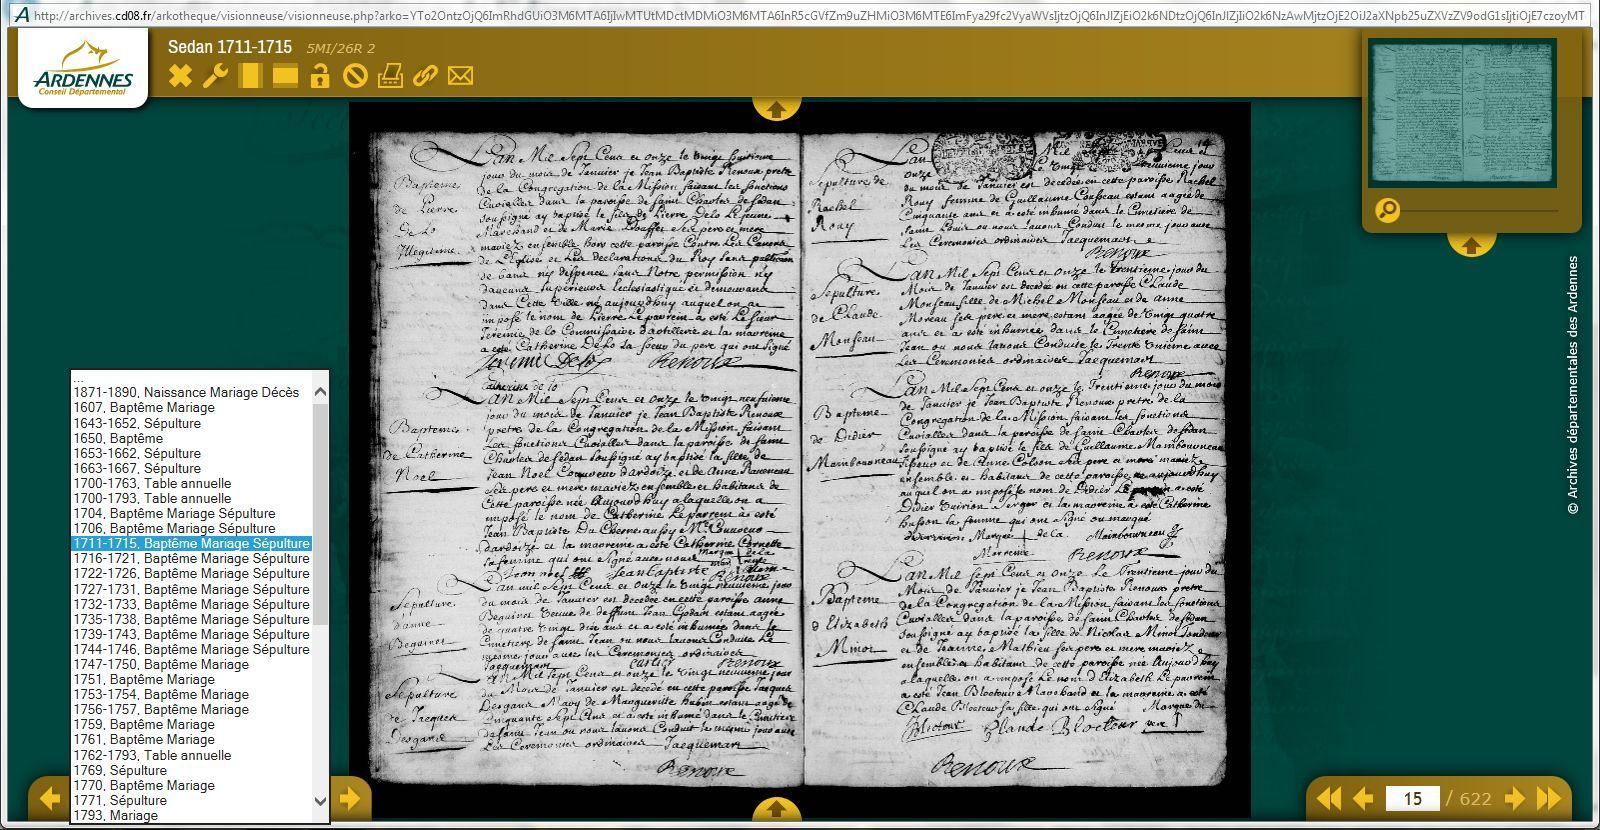 http://archives.cd08.fr/arkotheque/visionneuse/visionneuse.php?arko=
Sedan 1711-1715 5MI/26R 2
ARDENNES
Conseil Départemental
...
1871-1890, Naissance Mariage Décès
1607, Baptême Mariage
1643-1652, Sépulture
1650, Baptême
1653-1662, Sépulture
1663-1667, Sépulture
1700-1763, Table annuelle
1700-1793, Table annuelle
1704, Baptême Mariage Sépulture
1706, Baptême Mariage Sépulture
1711-1715, Baptême Mariage Sépulture
1716-1721, Baptême Mariage Sépulture
1722-1726, Baptême Mariage Sépulture
1727-1731, Baptême Mariage Sépulture
1732-1733, Baptême Mariage Sépulture
1735-1738, Baptême Mariage Sépulture
1739-1743, Baptême Mariage Sépulture
1744-1746, Baptême Mariage Sépulture
1747-1750, Baptême Mariage
1751, Baptême Mariage
1753-1754, Baptême Mariage
1756-1757, Baptême Mariage
1759, Baptême Mariage
1761, Baptême Mariage
1762-1793, Table annuelle
1769, Sépulture
1770, Baptême Mariage
1771, Sépulture
1793, Mariage
Bapteme
de Pierre
De Lo
Illegitime
Lan Mil Sept Cens et onze le Vingt huitieme
jour du mois de Janvier je Jean Baptiste Renoux pretre
de la Congregation de la Mission faisant les fonctions
Curialles dans la paroisse de saint Charles de Sedan
soussigné ay baptisé le fils de Pierre Delo Le jeune
Marchand et de Marie
mariez ensemble hors cette paroisse Contre Les Canons
de L'Eglise et Les declarations du Roy sans
de bans ny dispence sans Notre permission ny
d'aucuns Superieurs Ecclesiastique et demeurans
dans Cette Ville né aujourdhuy auquel on a
imposé le nom de Pierre Le parrein a esté Le sieur
Jeremie de lo Commissaire d'artillerie et la marreine
a esté Catherine De Lo sa soeur du pere qui ont signé
Renoux
Catherine de lo
Bapteme
de Catherine
Noel
Lan Mil Sept Cens et onze le Vingt neufuieme
jour du mois de Janvier je Jean Baptiste Renoux
pretre de la Congregation de la Mission faisant
Les fonctions Curialles dans la paroisse de saint
Charles de Sedan soussigné ay baptisé la fille de
Jean Noel Couvreur d'ardoize et de Anne
ses pere et mere mariez ensemble et habitans de
Cette paroisse née Aujourdhuy a laquelle on a
imposé le nom de Catherine Le parrein a esté
Jean Baptiste Du Chesne aussy Mtre Couvreur
d'ardoize et la marreine a esté Catherine Cornette
sa femme qui ont signé avec nous
Jean noel Jean baptiste Renoux
Sepulture
d'anne
Beguinet
Lan mil Sept Cens et onze le Vingt neuvieme jour
du mois de Janvier est decedée en cette paroisse anne
Beguinet Veuve de deffunt Jean Godain estant aagée
de quatre Vingt dix ans et a esté inhumée dans le
Cimetiere de saint Jean ou nous lauons Conduite Le
mesme jour auec les Ceremonies ordinaires
Jacquemart Renoux
Sepulture
de Jacques
Desgans
Lan Mil Sept Cens et onze le Vingt neuvieme jour
du Mois de Janvier est decedé en cette paroisse Jacques
Desgans Mary de Marguerite Hubin estant aagé de
Cinquante Sept Ans et a esté inhumé dans le Cimetiere
de saint Jean ou nous lauons Conduit le mesme jour auec
Les Ceremonies ordinaires Jacquemart
Renoux
Sepulture de
Rachel
Rouy
Lan Mil Cens et
onze le Vingt neuvieme jour
du mois de Janvier est decedée en cette paroisse Rachel
Rouy femme de Guillaume Cousseau estant aagée de
Cinquante ans et a esté inhumée dans le Cimetiere de
saint Louis ou nous lauons Conduit le mesme jour auec
Les Ceremonies ordinaires Jacquemart
Renoux
Sepulture
de Claude
Monseau
Lan Mil Sept Cens et onze le trentieme jour du
Mois de Janvier est decedée en cette paroisse Claude
Monseau fille de Michel Monseau et de anne
Moreau ses pere et mere estant aagée de Vingt quatre
ans et a esté inhumée dans le Cimetiere de saint
Jean ou nous lauons Conduite le Trente Unieme auec
Les Ceremonies ordinaires Jacquemart
Renoux
Bapteme
de Didier
Mambourneau
Lan Mil Sept Cens et onze le Trentieme jour du mois
de Janvier je Jean Baptiste Renoux pretre de la
Congregation de la Mission faisant les fonctions
Curialles dans la paroisse de saint Charles de Sedan
soussigné ay baptisé le fils de Guillaume Mambourneau
et de Anne Colson ses pere et mere mariez
ensemble et habitans de cette paroisse né aujourdhuy
auquel on a imposé le nom de Didier Le a esté
Didier Turrion Serger et la marreine a esté Catherine
Husson sa femme qui ont signé ou marqué
Marque de la Mambourneau
Marreine Renoux
Bapteme
d Elizabeth
Minot
Lan Mil Sept Cens et onze Le Trentieme jour du
Mois de Janvier je Jean Baptiste Renoux pretre
de la Congregation de la Mission faisant les fonctions
Curialles dans la paroisse de saint Charles de Sedan
soussigné ay baptisé la fille de Nicolas Minot Tondeur
et de Jeanne Mathieu ses pere et mere mariez
ensemble et habitans de cette paroisse née Aujourdhuy
a laquelle on a imposé Le nom d'Elizabeth Le parrein
a esté Jean Blocteur Marchand et la marreine a esté
Claude Blocteur sa fille qui ont signé Marque du
Blocteur Claude Blocteur
Renoux
© Archives départementales des Ardennes
15 / 622